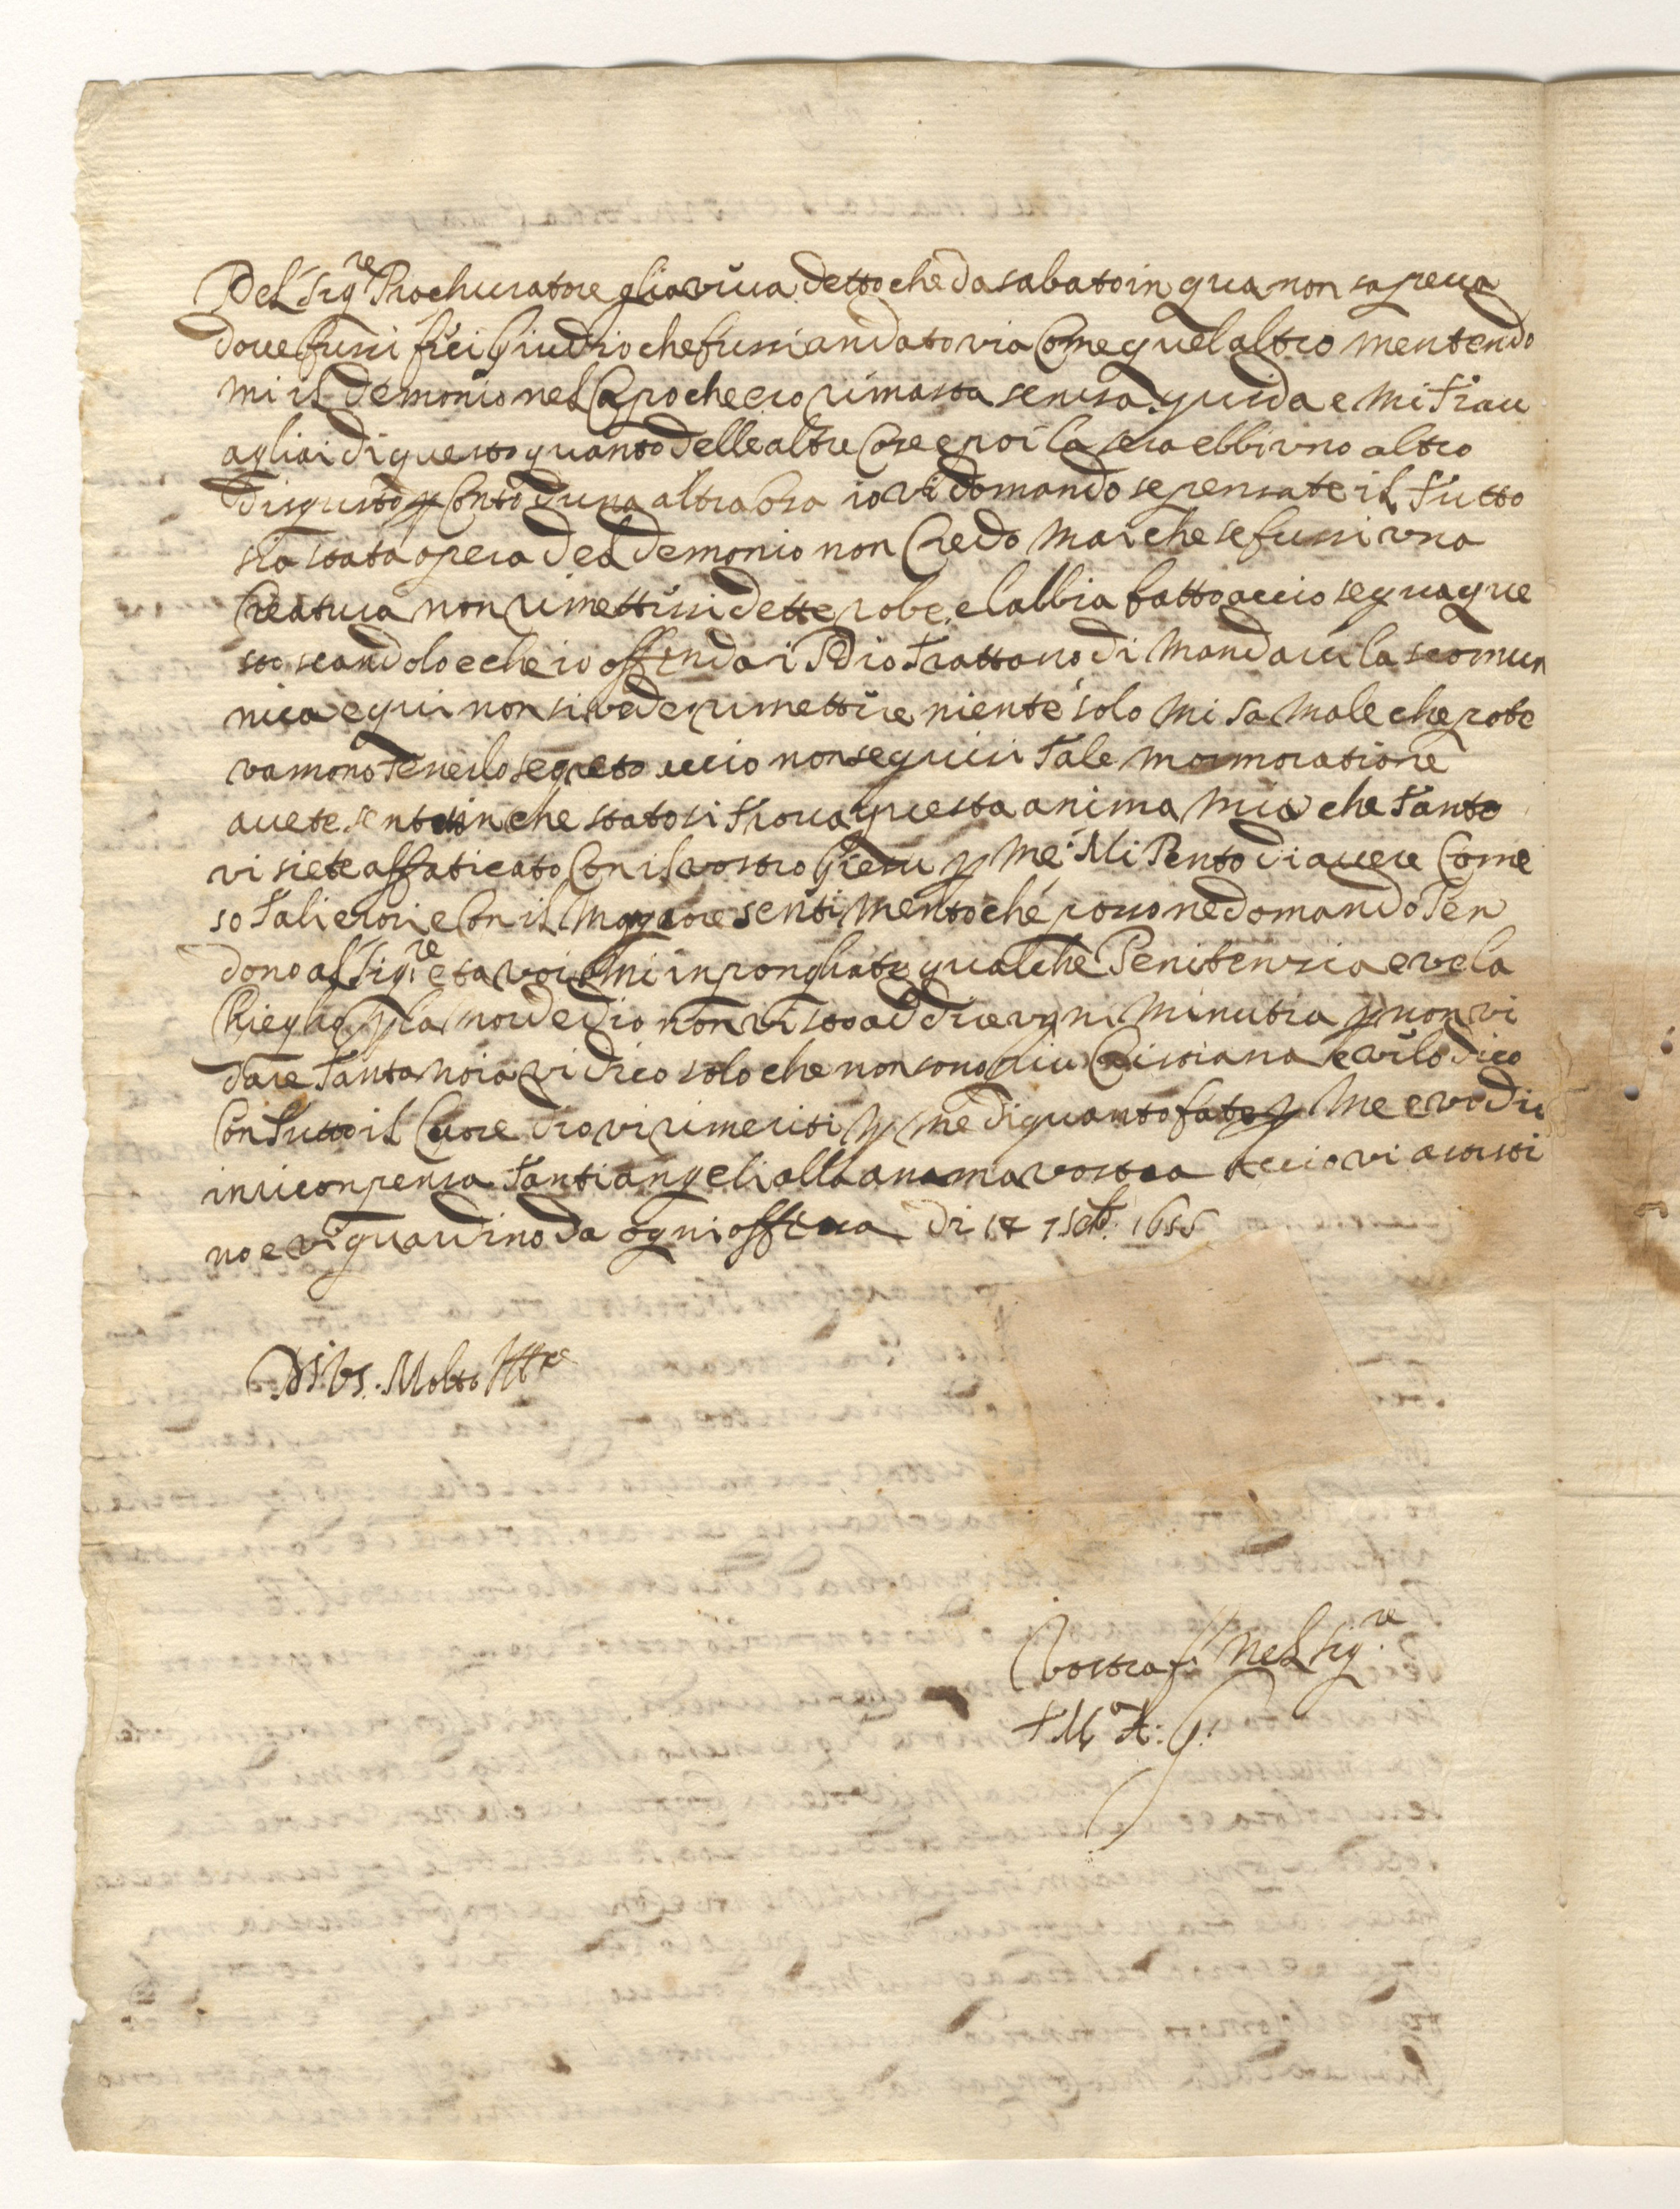 Del Sigre Prochuratore gli aviva detto che da sabato in qua non sapeva
dove fussi fici Giudizio che fussi andato via Come quel altro mentendo
mi il demonio nel Capo che ero rimasta sensa guida e mi trav
agliai di questo quanto delle altre Cose e poi la sera ebbi uno altro
disgusto p Conto duna altra Cosa io vi domando se pensate il tutto
sia stata opera del demonio non Credo mai che se fussi una
Creatura non rimettissi dette robe e labbia fatto accio segua que
sto scandolo e che io offenda i Dio trattano di mandarci la scomun
nica e qui non si vede rimettire niente solo mi sa male che pote
vamono tenerlo segreto accio non seguissi tale mormoratione
avete sentito in che stato si trova questa anima mia che tanto
vi siete affaticato Con il vostro Giesu p me Mi Pento di avere Come
so tali erori e Con il maggiore sentimento che posso ne domando Per
dono al Sigre et a voi mi inponghate qualche Penitensia e ve la
Chieglio p la mor de dio non vi sto ad dire ugni minutia p non vi
dare tanta noia vi dico solo che non sono piu Cristiana e vi lo dico
Con tutto il Cuore dio vi rimeriti p me di quanto fate p me e vo dir
in ricompensa tanti angeli alla anama vostra accio vi assisti
no e vi guardino da ogni offesa di 14 7seb. 1655
Di Vs. Molto Illre
Vostra f. Nel Sigre
+ Ma A: G: